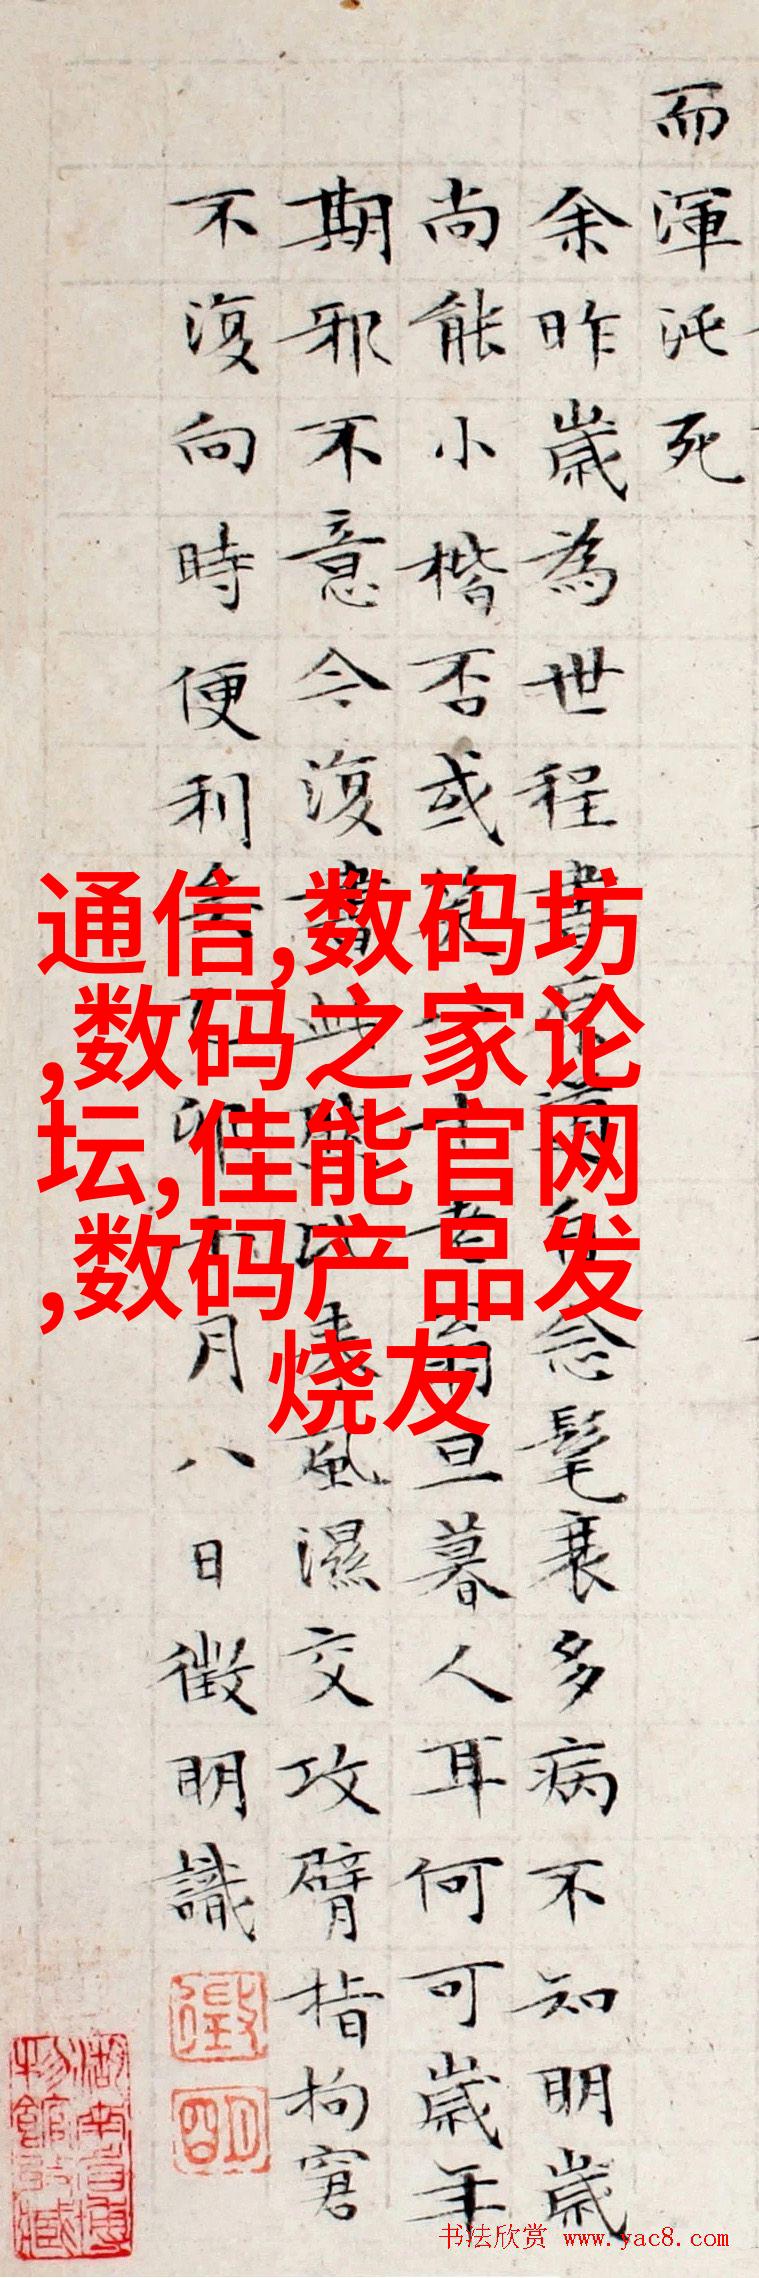 而渾沌死
余昨歲為世程書后 自念髦衰多病不知明歲
尚能小楷否或笑 十老翁旦暮人耳何可歲年
期邪不意今復書此 風濕交攻臂指拘窘
不復向時便利矣 卯 月八日徵明識
通信,数码坊
,数码之家论
坛,佳能官网
,数码产品发
烧友
湖南省博
物館 藏
书法欣赏 www.yac8.com